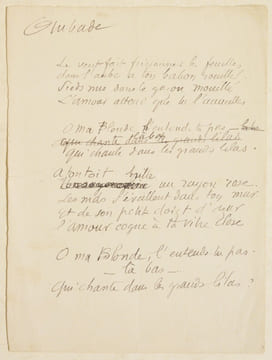 Aubade
Le vent fait frissonner les feuilles
dans l'aube
Pieds nus dans le gazon mouillé
L'amour attend que tu l'accueilles
O ma Blonde l'entends tu pas —
qui chante dans les grands lilas
Qui chante dans les grands lilas.
A ton toit brille
un rayon rose
Les s'éveillent dans ton mur
Et de son petit doigt d'azur
L'amour cogne à ta vitre close
O ma Blonde, l'entends tu pas -
— là bas —
Qui chante dans les grands lilas ?